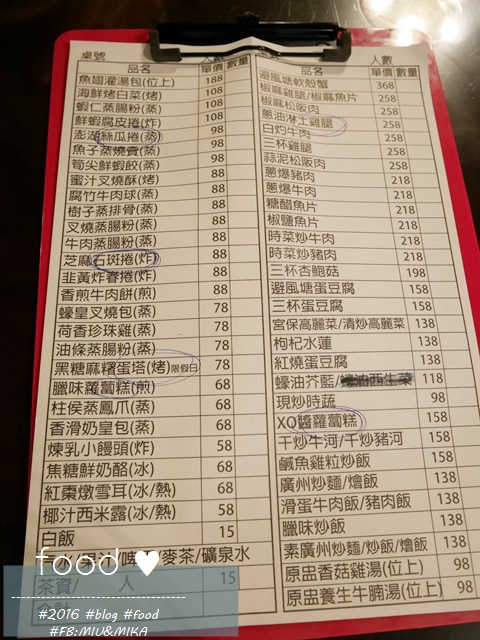 桌號 人數
品名 單價 數量
魚翅灌湯包(位上) 188
海鮮烤白菜(烤) 108
蝦仁蒸腸粉(蒸) 98
鮮蝦腐皮捲(炸) 98
澎湖絲瓜捲(蒸) 98
魚子蒸燒賣(蒸) 98
筍尖鮮蝦餃(蒸) 98
蜜汁叉燒酥(烤) 88
腐竹牛肉球(蒸) 88
樹子蒸排骨(蒸) 88
叉燒蒸腸粉(蒸) 88
牛肉蒸腸粉(蒸) 88
芝麻石斑捲(炸) 88
韭黃炸春捲(炸) 88
香煎牛肉餅(煎) 88
蠔皇叉燒包(蒸) 78
荷香珍珠雞(蒸) 78
油條蒸腸粉(蒸) 78
黑糖麻糬蛋塔(烤)限假日 78
臘味蘿蔔糕(煎) 68
柱侯蒸鳳爪(蒸) 68
香滑奶皇包(蒸) 68
煉乳小饅頭(炸) 58
焦糖鮮奶酪(冰) 68
紅棗燉雪耳(冰/熱) 68
椰汁西米露(冰/熱) 58
白飯 15
啤 麥茶/礦泉水
茶資/ 人 15
人數
品名 單價 數量
避風塘軟殼蟹 368
椒麻雞腿/椒麻魚片 258
椒麻松阪肉 258
蔥油淋土雞腿 258
白灼牛肉 258
三杯雞腿 258
蒜泥松阪肉 258
蔥爆豬肉 218
蔥爆牛肉 218
糖醋魚片 218
椒鹽魚片 218
時菜炒牛肉 218
時菜炒豬肉 218
三杯杏鮑菇 198
避風塘蛋豆腐 158
三杯蛋豆腐 158
宮保高麗菜/清炒高麗菜 138
枸杞水蓮 138
紅燒蛋豆腐 138
蠔油芥藍/蠔油西生菜 118
現炒時蔬 98
XQ醬蘿蔔糕 158
干炒牛河/干炒豬河 158
鹹魚雞粒炒飯 158
廣州炒麵/燴飯 158
滑蛋牛肉飯/豬肉飯 138
臘味炒飯 138
素廣州炒麵/炒飯/燴飯 138
原盅香菇雞湯(位上) 98
原盅養生牛腩湯(位上) 98
food
#2016 #blog #food
#FB:MIU&MIKA